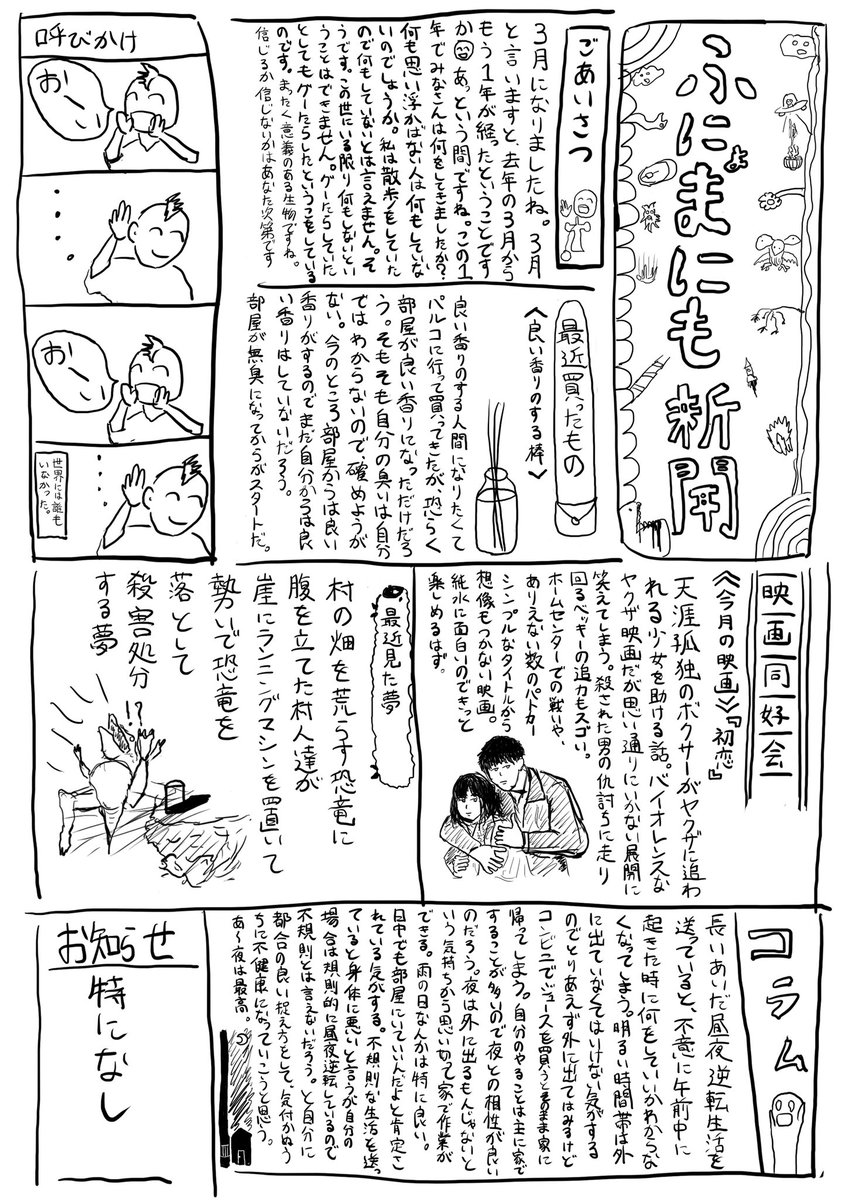 ふにまにも新聞
よ
ごあいさつ
3月になりましたね。3月
と言いますと、去年の3月から
もう1年が経ったということです
か あっという間ですね。この1
年でみなさんは何をしてきましたか?
何も思い浮かばない人は何もしていな
いのでしょうか。私は散歩をしていた
ので何もしていないとは言えません。そ
うです。この世にいる限り何もしないとい
うことはできません。グーたらしていた
としてもグーたらしたということをしている
のです。まったく意義のある生物ですね。
信じるか信じないかはあなた次第です
呼びかけ
おーい
・・・・
おーい
・・・
世界には誰も
いなかった。
最近買ったもの
<良い香りのする棒>
良い香りのする人間になりたくて
パルコに行って買ってきたが、恐らく
部屋が良い香りになっただけだろ
う。そもそも自分の臭いは自分
ではわからないので、確めようが
ない。今のところ部屋からは良い
香りがするのでまだ自分からは良
い香りはしていないだろう。
部屋が無臭になってからがスタートだ。
映画同好会
≪今月の映画≫『初恋』
天涯孤独のボクサーがヤクザに追わ
れる少女を助ける話。バイオレンスな
ヤクザ映画だが思い通りにいかない展開に
笑えてしまう。殺された男の仇討ちに走り
回るベッキーの迫力もスゴい。
ホームセンターでの戦いや、
ありえない数のパトカー
シンプルなタイトルから
想像もつかない映画。
純水に面白いのできっと
楽しめるはず。
最近見た夢
村の畑を荒らす恐竜に
腹を立てた村人達が
崖にランニングマシンを置いて
勢いで恐竜を
落として
殺害処分
する夢
!?
コラム
長いあいだ昼夜逆転生活を
送っていると、不意に午前中に
起きた時に何をしていいかわからな
くなってしまう。明るい時間帯は外
に出ていなくてはいけない気がする
のでとりあえず外に出てはみるけど
コンビニでジュースを買うとそのまま家に
帰ってしまう。自分のやることは主に家で
することが多いので夜との相性が良い
のだろう。夜は外に出るもんじゃないと
いう気持ちから思い切て家で作業が
できる。雨の日なんかは特に良い。
日中でも部屋にいていいんだよと肯定さ
れている気がする。不規則な生活を送っ
ていると身体に悪いと言うが自分の
場合は規則的に昼夜逆転しているので
不規則とは言えないだろう。と自分に
都合の良い捉え方をして、気付かぬう
ちに不健康になっていこうと思う。
あ〜夜は最高。
お知らせ
特になし